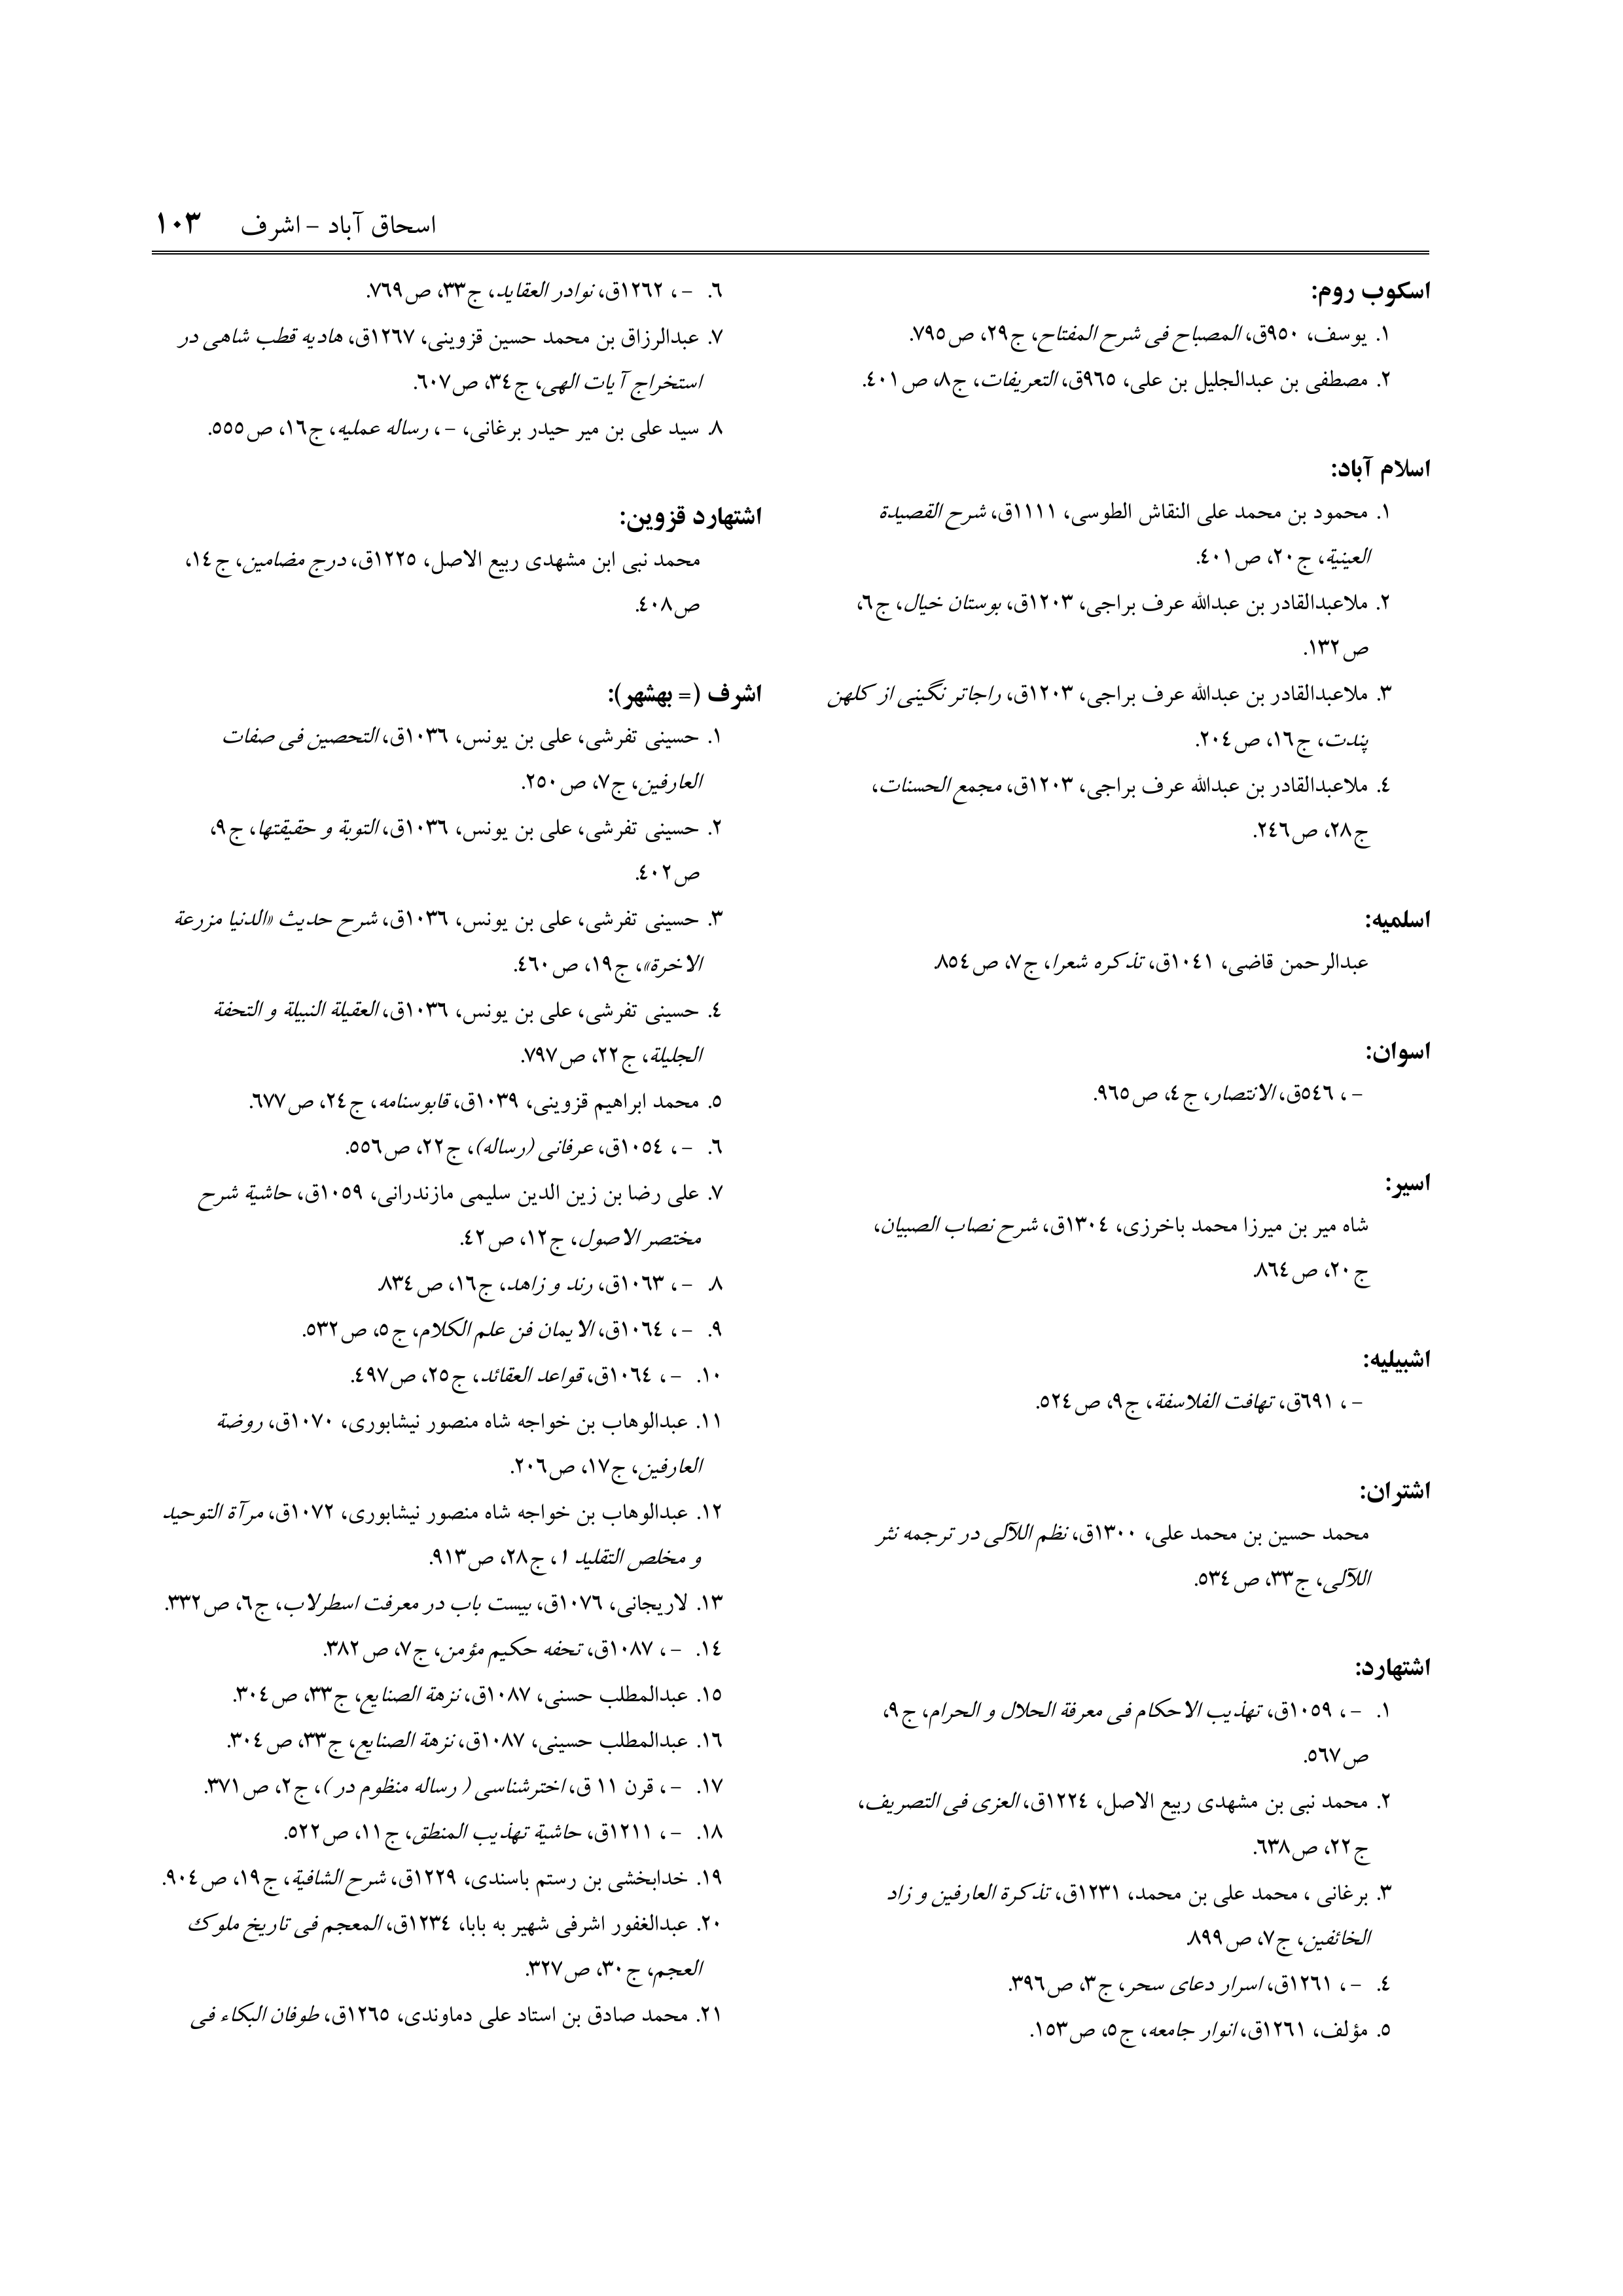 اسحاق آباد – اشرف ۱۰۳
اسکوب روم:
۱. یوسف، ۹٥۰ق، المصباح فی شرح المفتاح، ج۲۹، ص۷۹٥.
۲. مصطفی بن عبدالجلیل بن علی، ۹٦٥ق، التعریفات، ج۸، ص٤۰۱.
اسلام آباد:
۱. محمود بن محمد علی النقاش الطوسی، ۱۱۱۱ق، شرح القصیدة
العینیة، ج۲۰، ص٤۰۱.
۲. ملاعبدالقادر بن عبدالله عرف براجی، ۱۲۰۳ق، بوستان خیال، ج٦،
ص۱۳۲.
۳. ملاعبدالقادر بن عبدالله عرف براجی، ۱۲۰۳ق، راجاتر نگینی از کلهن
پندت، ج۱٦، ص۲۰٤.
٤. ملاعبدالقادر بن عبدالله عرف براجی، ۱۲۰۳ق، مجمع الحسنات،
ج۲۸، ص۲٤٦.
اسلمیه:
عبدالرحمن قاضی، ۱۰٤۱ق، تذکره شعرا، ج۷، ص۸٥٤.
اسوان:
– ، ٥٤٦ق، الانتصار، ج٤، ص۹٦٥.
اسیر:
شاه میر بن میرزا محمد باخرزی، ۱۳۰٤ق، شرح نصاب الصبیان،
ج۲۰، ص۸٦٤.
اشبیلیه:
– ، ٦۹۱ق، تهافت الفلاسفة، ج۹، ص٥۲٤.
اشتران:
محمد حسین بن محمد علی، ۱۳۰۰ق، نظم اللآلی در ترجمه نثر
اللآلی، ج۳۳، ص٥۳٤.
اشتهارد:
۱. – ، ۱۰٥۹ق، تهذیب الاحکام فی معرفة الحلال و الحرام، ج۹،
ص٥٦۷.
۲. محمد نبی بن مشهدی ربیع الاصل، ۱۲۲٤ق، العزی فی التصریف،
ج۲۲، ص٦۳۸.
۳. برغانی ، محمد علی بن محمد، ۱۲۳۱ق، تذکرة العارفین و زاد
الخائفین، ج۷، ص۸۹۹.
٤. – ، ۱۲٦۱ق، اسرار دعای سحر، ج۳، ص۳۹٦.
٥. مؤلف، ۱۲٦۱ق، انوار جامعه، ج٥، ص۱٥۳.
٦. – ، ۱۲٦۲ق، نوادر العقاید، ج۳۳، ص۷٦۹.
۷. عبدالرزاق بن محمد حسین قزوینی، ۱۲٦۷ق، هادیه قطب شاهی در
استخراج آیات الهی، ج۳٤، ص٦۰۷.
۸. سید علی بن میر حیدر برغانی، – ، رساله عملیه، ج۱٦، ص٥٥٥.
اشتهارد قزوین:
محمد نبی ابن مشهدی ربیع الاصل، ۱۲۲٥ق، درج مضامین، ج۱٤،
ص٤۰۸.
اشرف (= بهشهر):
۱. حسینی تفرشی، علی بن یونس، ۱۰۳٦ق، التحصین فی صفات
العارفین، ج۷، ص۲٥۰.
۲. حسینی تفرشی، علی بن یونس، ۱۰۳٦ق، التوبة و حقیقتها، ج۹،
ص٤۰۲.
۳. حسینی تفرشی، علی بن یونس، ۱۰۳٦ق، شرح حدیث «الدنیا مزرعة
الاخرة»، ج۱۹، ص٤٦۰.
٤. حسینی تفرشی، علی بن یونس، ۱۰۳٦ق، العقیلة النبیلة و التحفة
الجلیلة، ج۲۲، ص۷۹۷.
٥. محمد ابراهیم قزوینی، ۱۰۳۹ق، قابوسنامه، ج۲٤، ص٦۷۷.
٦. – ، ۱۰٥٤ق، عرفانی (رساله)، ج۲۲، ص٥٥٦.
۷. علی رضا بن زین الدین سلیمی مازندرانی، ۱۰٥۹ق، حاشیة شرح
مختصر الاصول، ج۱۲، ص٤۲.
۸. – ، ۱۰٦۳ق، رند و زاهد، ج۱٦، ص۸۳٤.
۹. – ، ۱۰٦٤ق، الایمان فن علم الکلام، ج٥، ص٥۳۲.
۱۰. – ، ۱۰٦٤ق، قواعد العقائد، ج۲٥، ص٤۹۷.
۱۱. عبدالوهاب بن خواجه شاه منصور نیشابوری، ۱۰۷۰ق، روضة
العارفین، ج۱۷، ص۲۰٦.
۱۲. عبدالوهاب بن خواجه شاه منصور نیشابوری، ۱۰۷۲ق، مرآة التوحید
و مخلص التقلید ۱، ج۲۸، ص۹۱۳.
۱۳. لاریجانی، ۱۰۷٦ق، بیست باب در معرفت اسطرلاب، ج٦، ص۳۳۲.
۱٤. – ، ۱۰۸۷ق، تحفه حکیم مؤمن، ج۷، ص۳۸۲.
۱٥. عبدالمطلب حسنی، ۱۰۸۷ق، نزهة الصنایع، ج۳۳، ص۳۰٤.
۱٦. عبدالمطلب حسینی، ۱۰۸۷ق، نزهة الصنایع، ج۳۳، ص۳۰٤.
۱۷. – ، قرن ۱۱ ق، اخترشناسی ( رساله منظوم در )، ج۲، ص۳۷۱.
۱۸. – ، ۱۲۱۱ق، حاشیة تهذیب المنطق، ج۱۱، ص٥۲۲.
۱۹. خدابخشی بن رستم باسندی، ۱۲۲۹ق، شرح الشافیة، ج۱۹، ص۹۰٤.
۲۰. عبدالغفور اشرفی شهیر به بابا، ۱۲۳٤ق، المعجم فی تاریخ ملوک
العجم، ج۳۰، ص۳۲۷.
۲۱. محمد صادق بن استاد علی دماوندی، ۱۲٦٥ق، طوفان البکاء فی